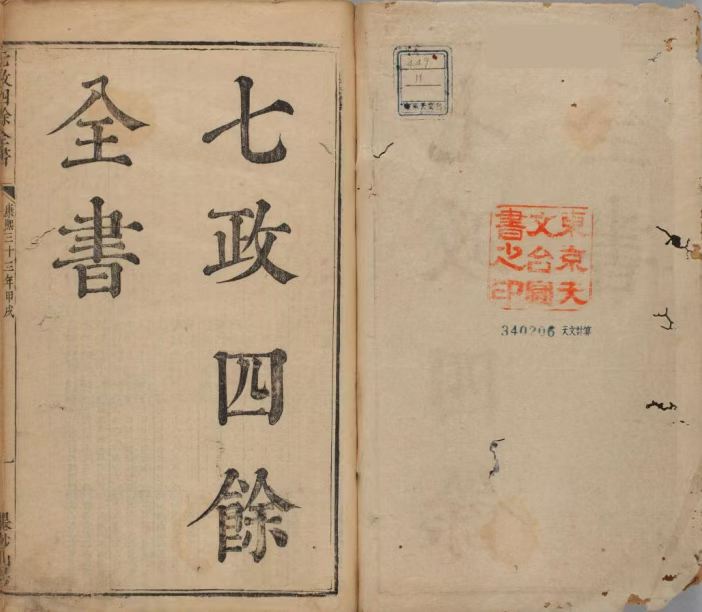 七政四餘
全書
七政四餘全書
康熙三十三年甲戌
一
449
11
東京天
文台圖
書之印
340206 天文計算